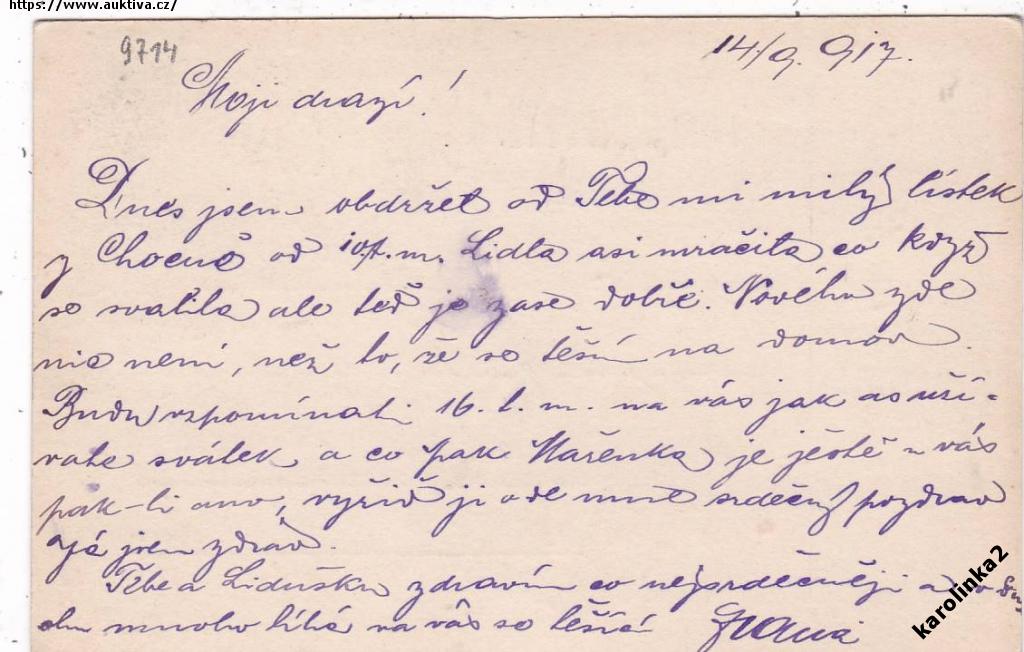 https://www.auktiva.cz/
9714
14/9. 917.
Moji drazí!
Dnes jsem obdržel od Tebe mi milý lístek
z Chocně od 10/t.m. Lidla asi mračila co když
se svalila ale teď je zase dobře. Nového zde
nic není, než to, že se těším na domov.
Budu vzpomínati 16. t. m. na vás jak as uží-
vate svátek a co pak Mařenka je ještě u vás
pak-li ano, vyřiď ji ode mne srdečný pozdrav
Já jsem zdráv.
Tebe a Lidušku zdravím co nejsrdečněji a
mnoho líbá na vás se těšící
karolinka2